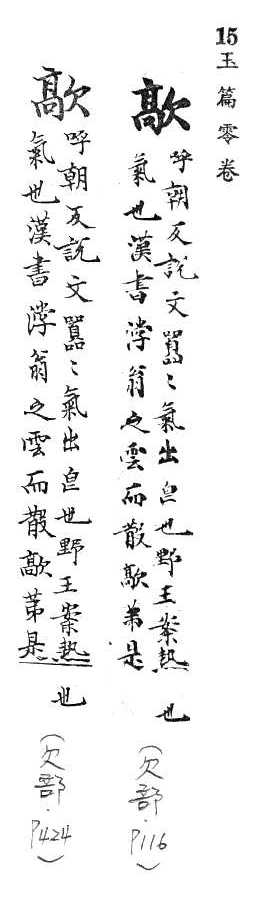 15玉篇零卷
歊
呼朝反説文囂〻氣出皃也野王案熱
氣也漢書浡翁之雲而散歊苐是
也
(欠部.P116)
歊
呼朝反説文囂〻氣出皃也野王案熱
氣也漢書浡翁之雲而散歊苐是
也
(欠部.P424)